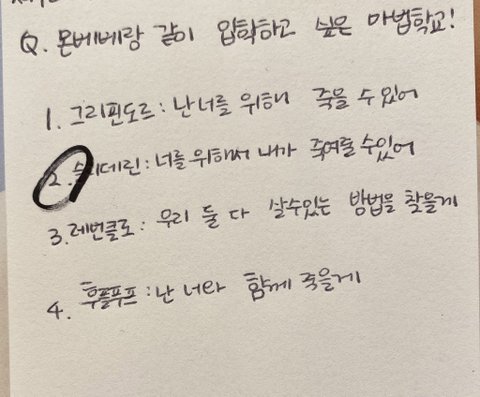 Q. 몬베베랑 같이 입학하고 싶은 마법학교!
1. 그리핀도르 : 난 너를 위해 죽을 수 있어
2. 슬리데린 : 너를 위해서 내가 죽여줄 수 있어
3. 레번클로 : 우리 둘 다 살 수 있는 방법을 찾을게
4. 후플푸프 : 난 너와 함께 죽을게